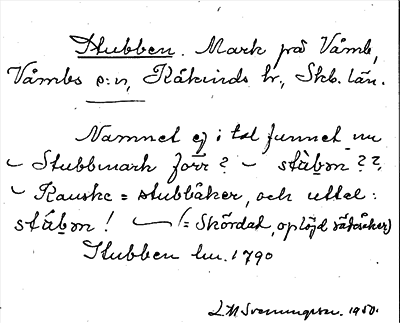 Stubben. Mark på Våmb,
Våmbs s:n, Kåkinds hr., Skb. län.
Namnet ej i tal funnet nu
– Stubbmark förr? – stub̲m̲ ??
– Kanske = stubbåker, och uttal:
stub̲m̲! – (= Skördad, oplöjd sädåker)
Stubben lm. 1790
1950.